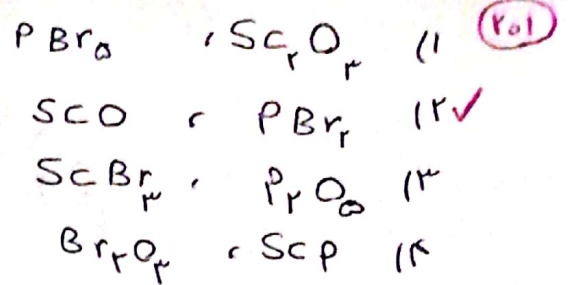 ۲۰۱
۱) Sc۲O۳ ، PBr۵
۲) ✓ PBr۲ ، SCO
۳) P۲O۵ ، ScBr۳
۴) ScP ، Br۲O۳